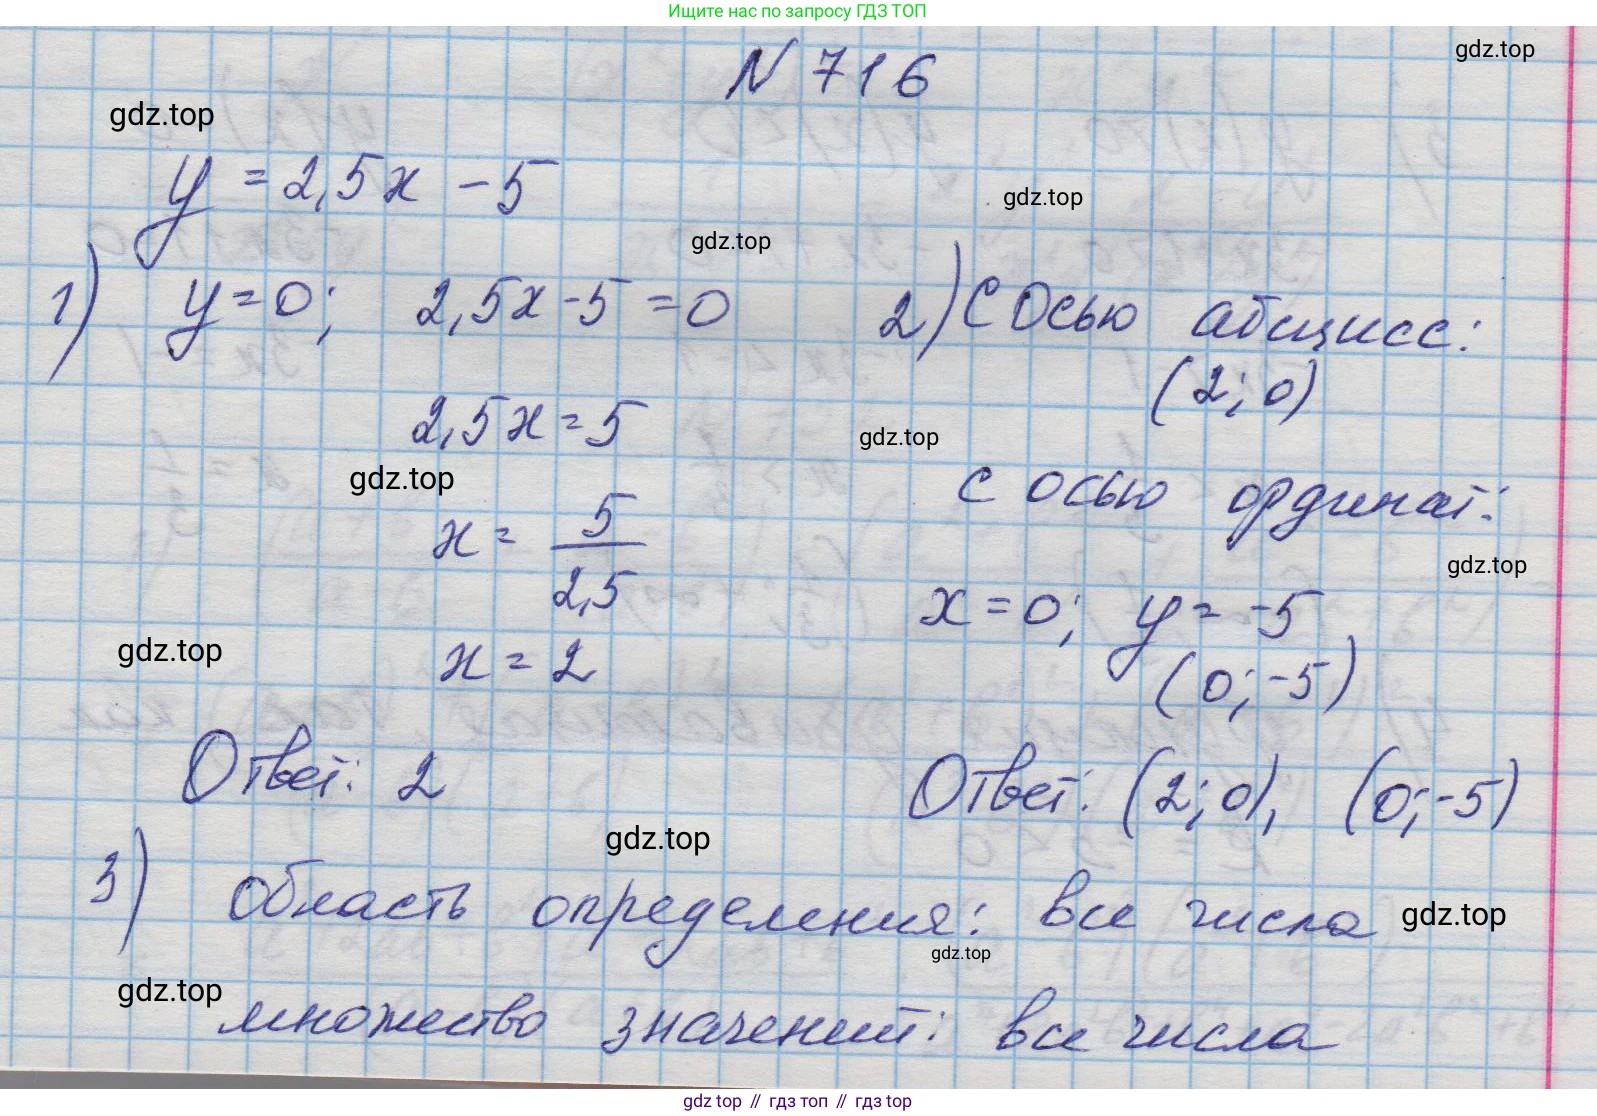 Ищите нас по запросу ГДЗ ТОП
N 716
gdz.top
gdz.top
y = 2,5x - 5
gdz.top
gdz.top
1) y = 0; 2,5x - 5 = 0
2,5x = 5
gdz.top
x = 5/2,5
x = 2
gdz.top
Ответ: 2
2) С осью абсцисс:
(2; 0)
gdz.top
с осью ординат:
gdz.top
x = 0; y = -5
(0; -5)
Ответ: (2; 0), (0; -5)
gdz.top
3) область определения: все числа
gdz.top
gdz.top
gdz.top
множество значений: все числа
gdz top // гдз топ // gdz top